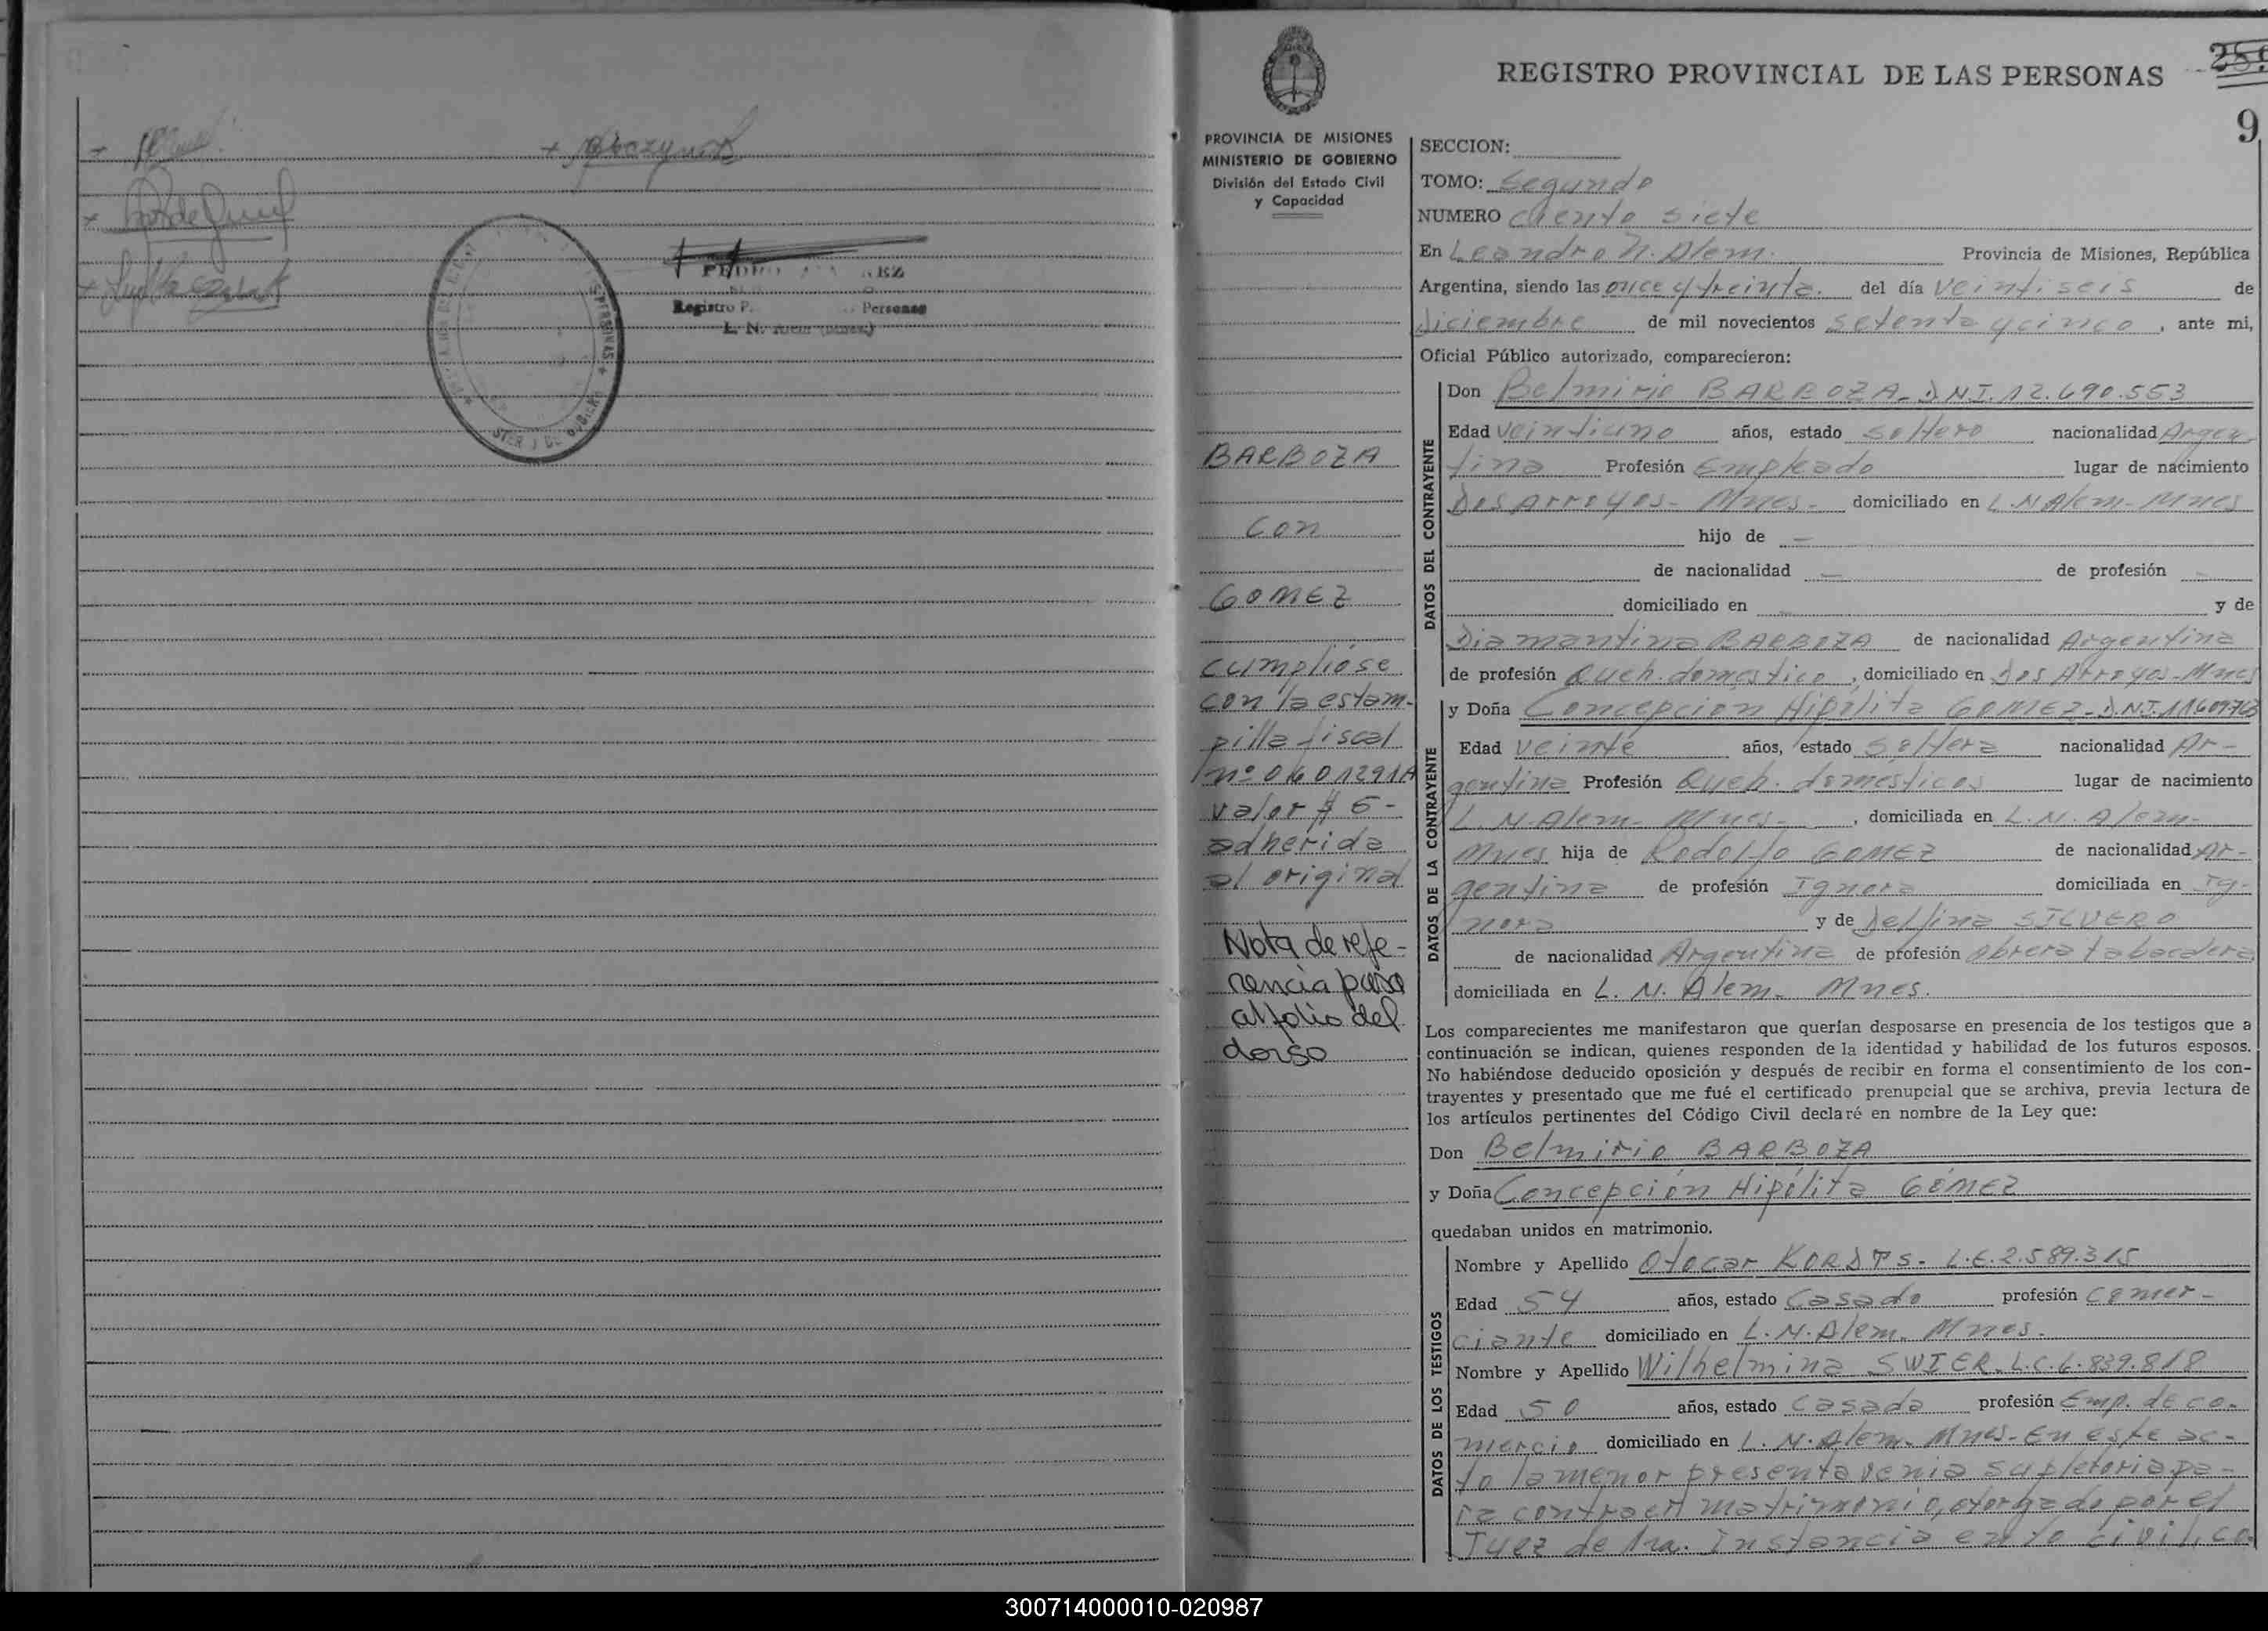 PEDRO
Registro P. Personas
L. N. Alem (Mnes.)
REGISTRO PROVINCIAL DE LAS PERSONAS
9
PROVINCIA DE MISIONES
MINISTERIO DE GOBIERNO
División del Estado Civil
y Capacidad
BARBOZA
con
GOMEZ
cumplióse
con la estam-
pilla fiscal
nº 0601291A
valor $ 6-
adherida
al original
Nota de refe-
rencia pasa
al folio del
dorso
SECCION:
TOMO: Segundo
NUMERO ciento siete
En Leandro N. Alem. Provincia de Misiones, República
Argentina, siendo las once y treinta. del día veintiseis de
diciembre de mil novecientos setenta y cinco, ante mi,
Oficial Público autorizado, comparecieron:
DATOS DEL CONTRAYENTE
Don Belmirio BARBOZA-D.N.I. 12.690.553
Edad veintiuno años, estado soltero nacionalidad Argen-
tina Profesión Empleado lugar de nacimiento
Dos Arroyos- Mnes- domiciliado en L.N Alem- Mnes
hijo de —
de nacionalidad — de profesión -
domiciliado en — y de
Diamantina BARBOZA de nacionalidad Argentina
de profesión Queh. domestico, domiciliado en Dos Arroyos-Mnes
DATOS DE LA CONTRAYENTE
y Doña Concepción Hipólita GOMEZ-D.N.I.
Edad veinte años, estado soltera nacionalidad Ar-
gentina Profesión Queh. domésticos lugar de nacimiento
L. N. Alem- Mnes-, domiciliada en L. N. Alem-
Mnes hija de Rodolfo GOMEZ de nacionalidad Ar-
gentina de profesión Ignora domiciliada en Ig-
nora y de Delfina SILVERO
de nacionalidad Argentina de profesión obrera tabacalera
domiciliada en L. N. Alem- Mnes.
Los comparecientes me manifestaron que querían desposarse en presencia de los testigos que a
continuación se indican, quienes responden de la identidad y habilidad de los futuros esposos.
No habiéndose deducido oposición y después de recibir en forma el consentimiento de los con-
trayentes y presentado que me fué el certificado prenupcial que se archiva, previa lectura de
los artículos pertinentes del Código Civil declaré en nombre de la Ley que:
Don Belmirio BARBOZA
y Doña Concepción Hipólita GÓMEZ
quedaban unidos en matrimonio.
DATOS DE LOS TESTIGOS
Nombre y Apellido Otocar KORDTS- L.E. 2.589.315
Edad 54 años, estado Casado profesión comer-
ciante domiciliado en L. N. Alem- Mnes.
Nombre y Apellido Wilhelmina SWIER-L.C. 6.839.818
Edad 50 años, estado Casada profesión Emp. de co-
mercio domiciliado en L. N. Alem- Mnes-En este ac-
to la menor presenta venia supletoria pa-
ra contraer matrimonio, otorgado por el
Juez de 1ra. Instancia en lo civil, co
300714000010-020987